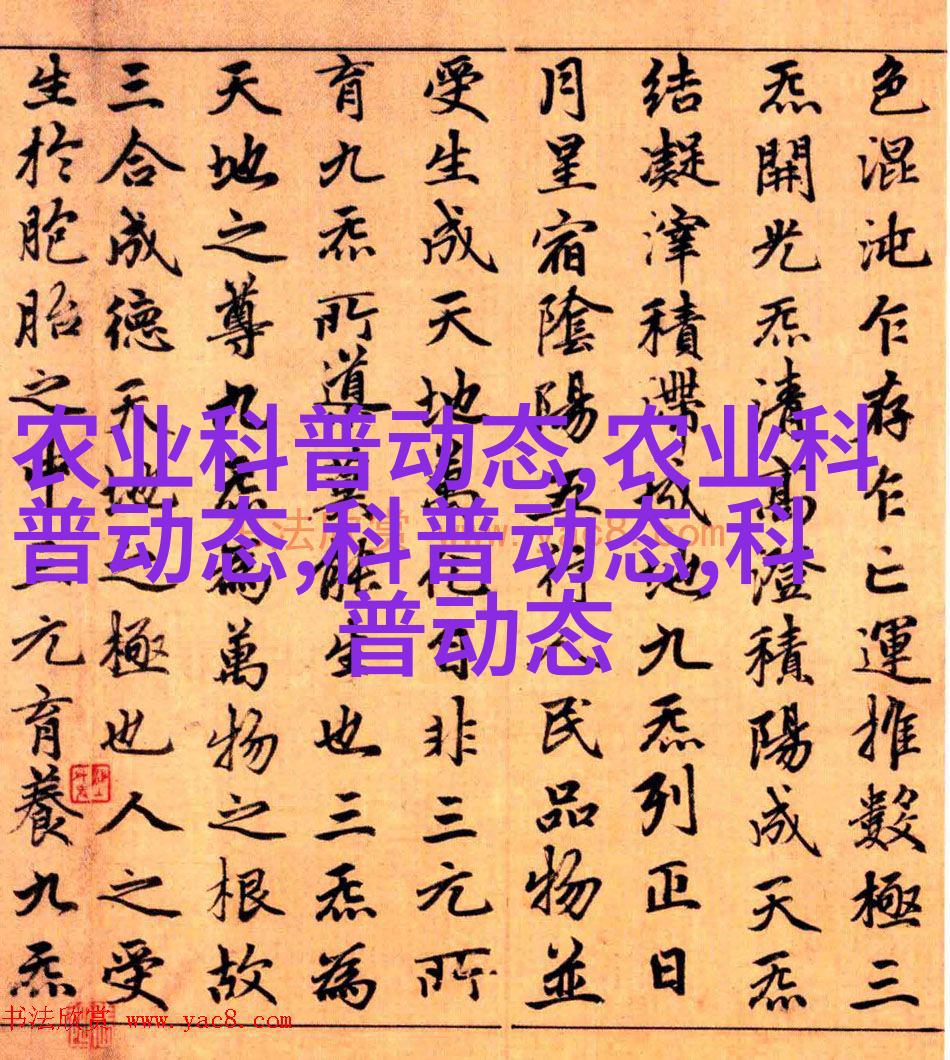 色混沌乍存乍亡運推數極三
炁開光炁清高澄積陽成天炁
結凝滓積滯成地九炁列正日
月星宿陰陽五行人民品物並
受生成天地萬化自非三元所
育九炁所道莫能生也三炁為
天地之尊九炁為萬物之根故
三合成德天地之極也人之受
生於胞胎之中三元育養九炁
农业科普动态,农业科
普动态,科普动态,科
普动态
书法欣赏 www.yac8.com
书法欣赏 www.yac8.com